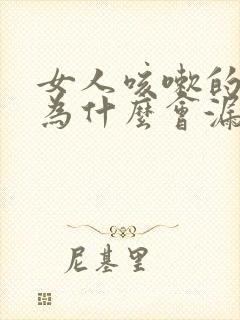 女人咳嗽的
為什麼會漏
尼基里